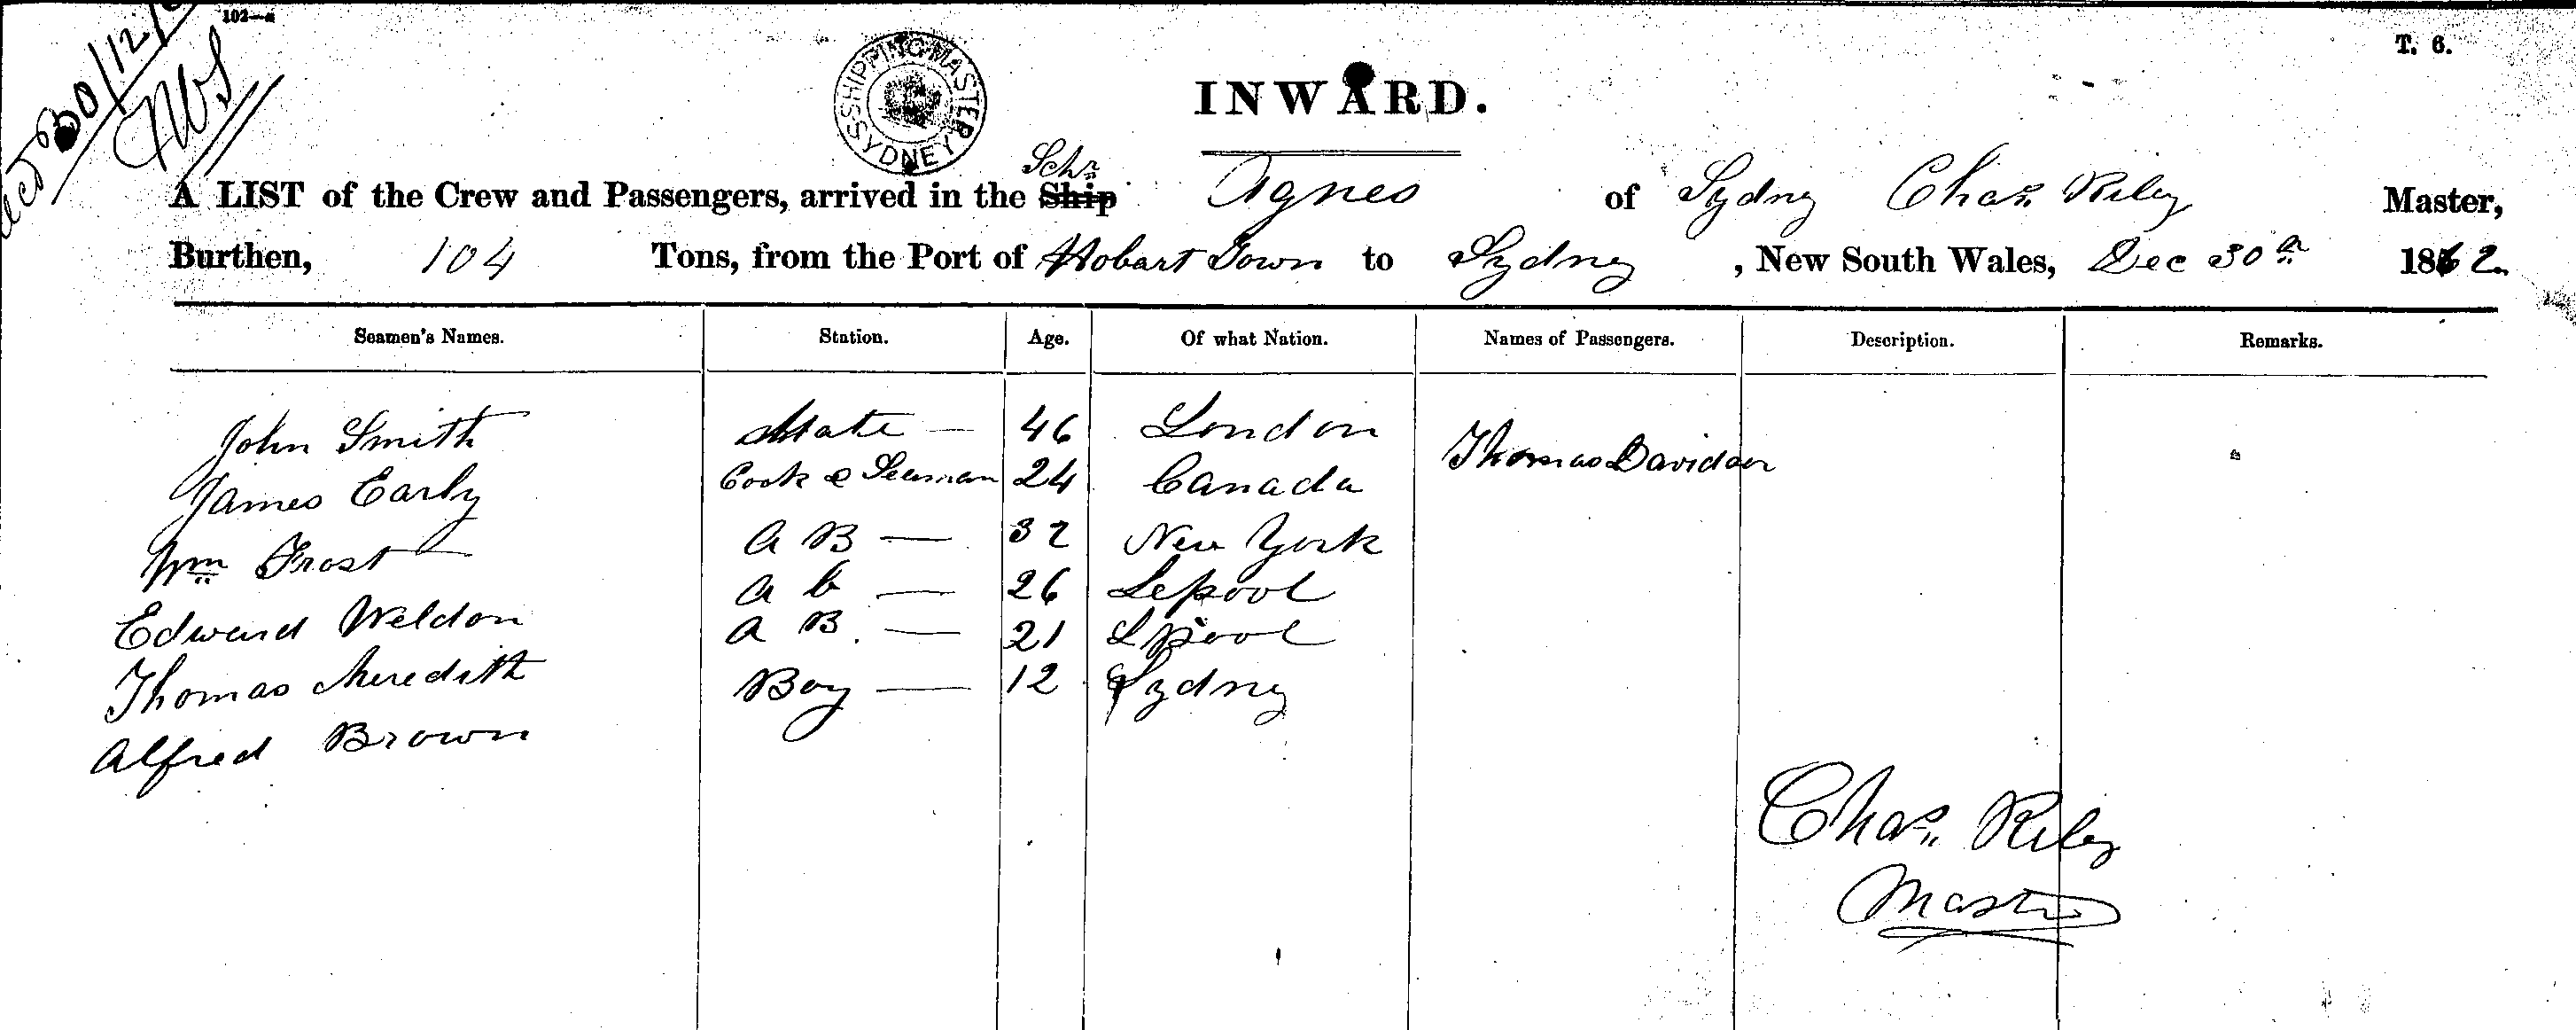 102—a
T. 6.
30/12/
SHIPPING MASTER SYDNEY
INWARD.
A LIST of the Crew and Passengers, arrived in the Ship Schr Agnes of Sydney Chas Riley Master,
Burthen, 104 Tons, from the Port of Hobart Town to Sydney, New South Wales, Dec 30th 1862.
Seamen's Names. Station. Age. Of what Nation. Names of Passengers. Description. Remarks.
John Smith Mate — 46 London Thomas Davidson
James Early Cook & Seaman 24 Canada
Wm Frost A B — 32 New York
Edward Weldon a b — 26 Lepool
Thomas Meredith A B. — 21 Lpool
Alfred Brown Boy — 12 Sydney
Chas Riley
Master